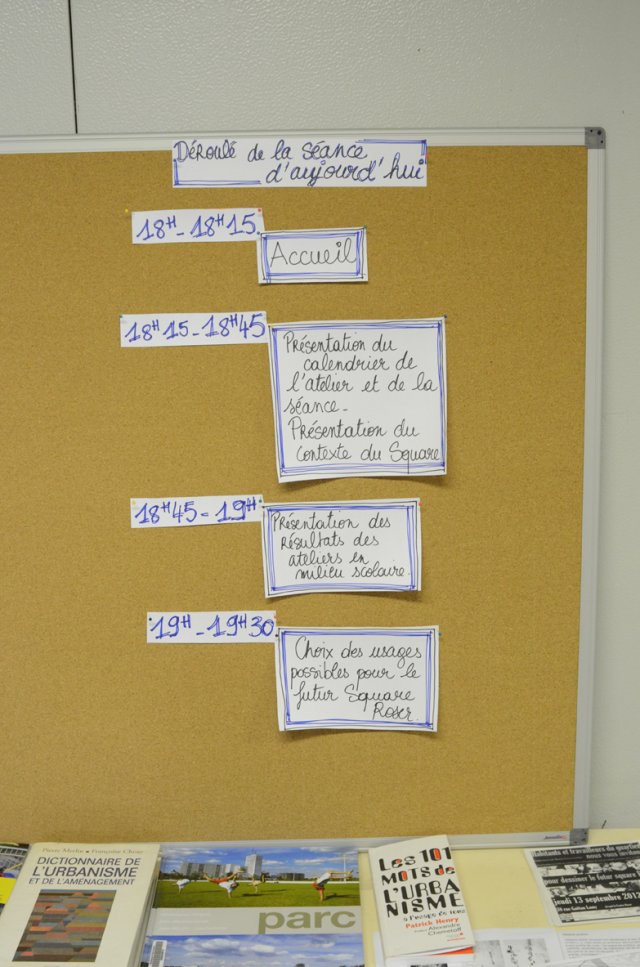 Déroulé de la séance
d'aujourd'hui
18H - 18H15
Accueil
18H15 - 18H45
Présentation du
calendrier de
l'atelier et de la
séance -
Présentation du
contexte du Square
18H45 - 19H
Présentation des
Résultats des
ateliers en
milieu scolaire.
19H - 19H30
Choix des usages
possibles pour le
futur Square
Roser.
Pierre Merlin • Françoise Choay
DICTIONNAIRE DE
L'URBANISME
ET DE L'AMÉNAGEMENT
parc
Les 101
MOTS de
L'URBA
NISME
à l'usage de tous
Patrick Henry
Alexandre
Chemetoff
Habitants et travailleurs du quartier
pour dessiner le futur square
jeudi 13 septembre 2012